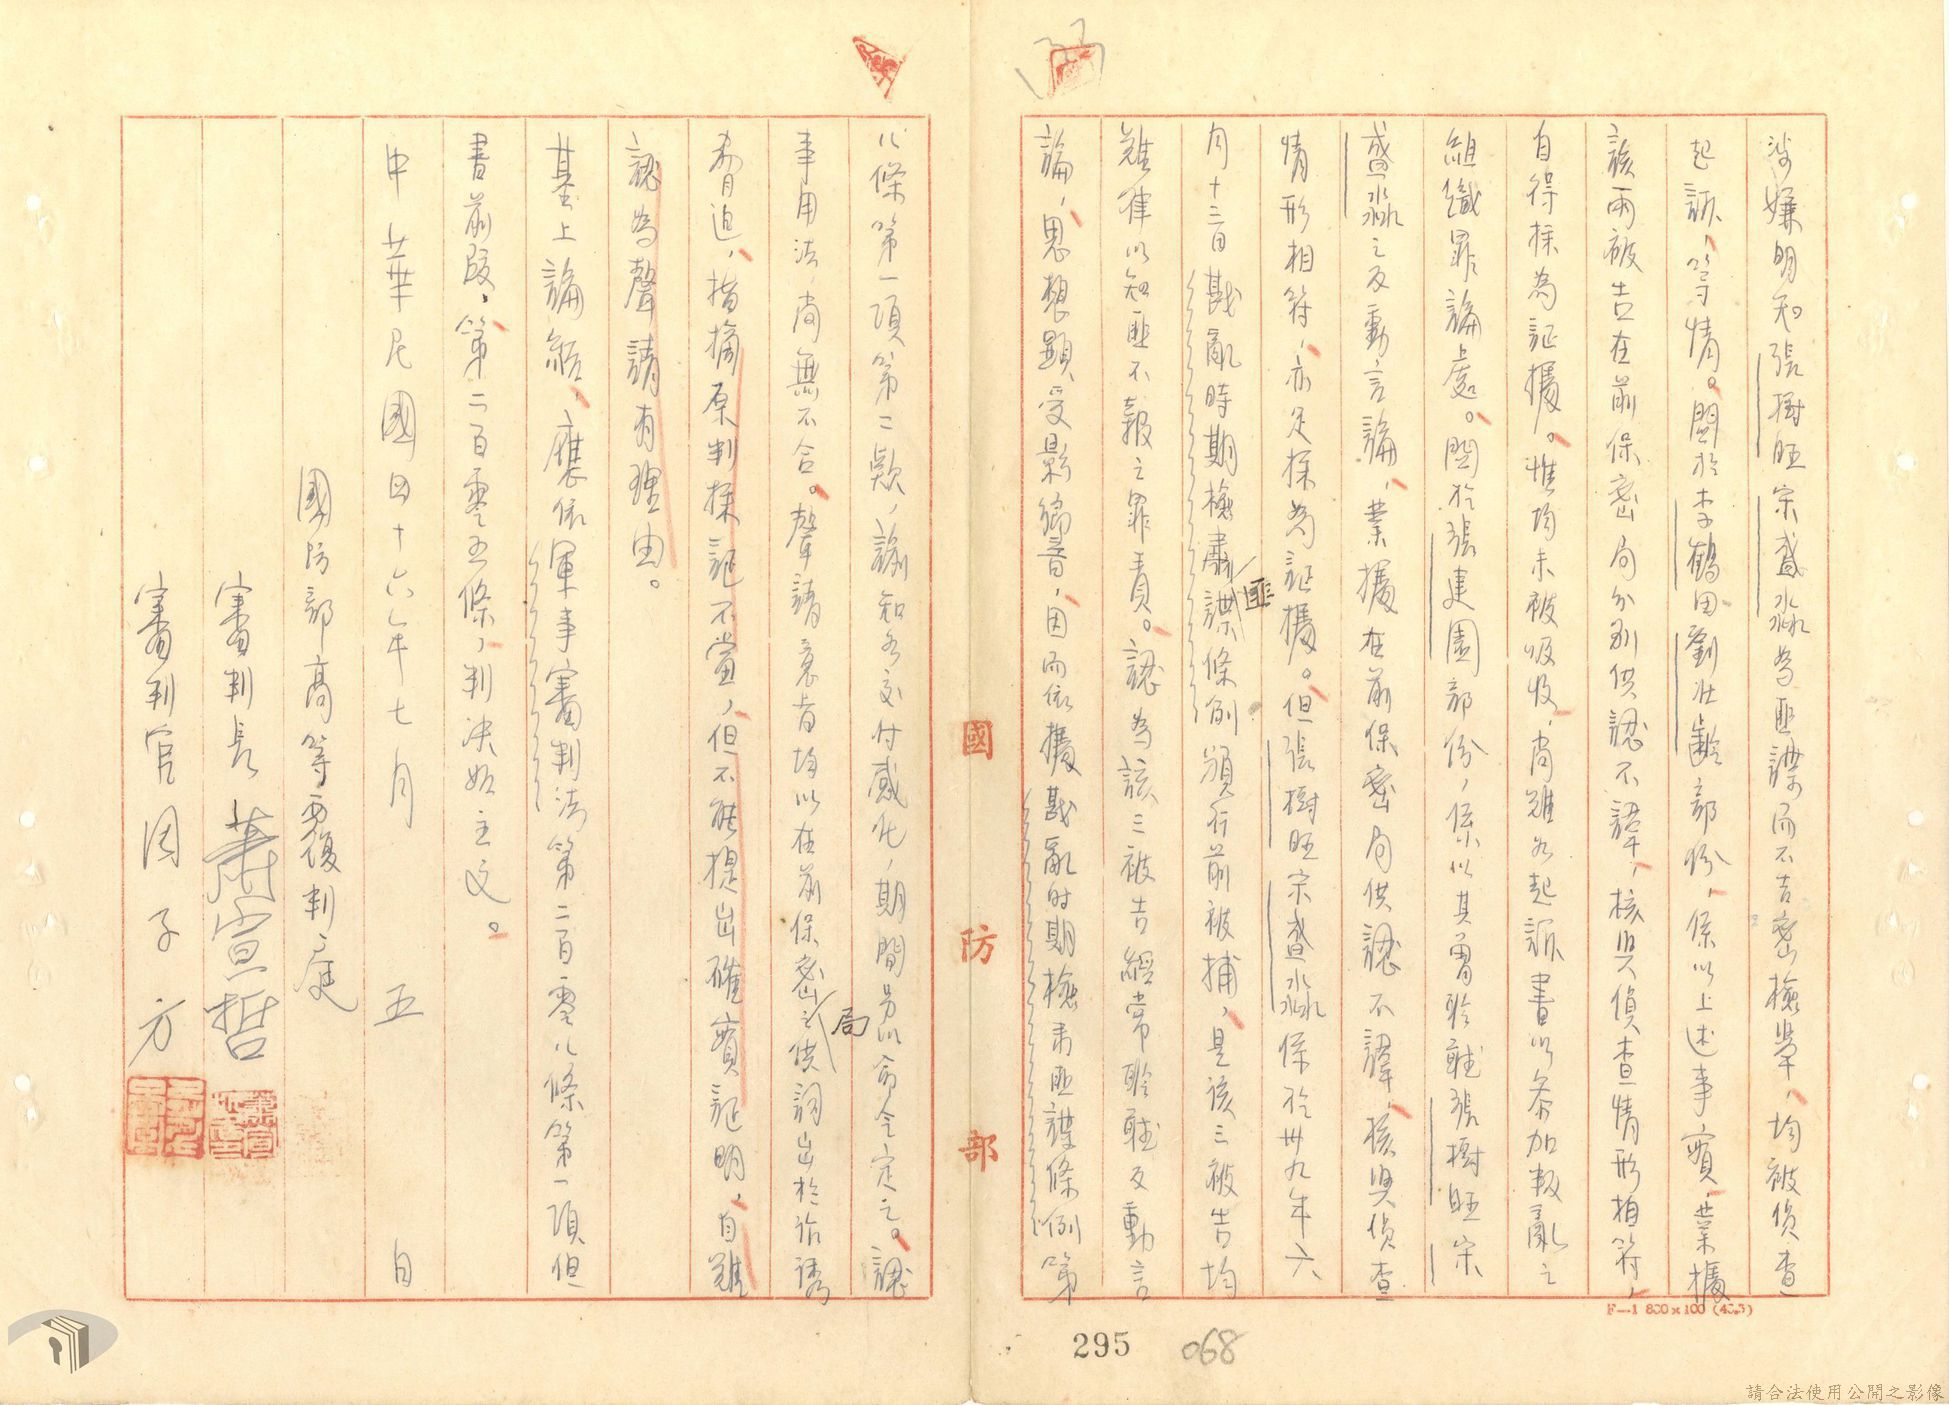 涉嫌明知張樹旺宋盛淼為匪諜而不告密檢舉,均被偵查
起訴,等情。關於李鶴田劉壯齡部份,係以上述事實,業據
該兩被告在前保密局分別供認不諱,核與偵查情形相符,
自得採為証據。惟均未被吸收,尚難如起訴書以參加叛亂之
組織罪論處。關於張建園部份,係以其曾聆聽張樹旺宋
盛淼之反動言論,業據在前保密局供認不諱,核與偵查
情形相符,亦足採為証據。但張樹旺宋盛淼係於卅九年六
月十三日戡亂時期檢肅匪諜條例頒行前被捕,是該三被告均
難律以知匪不報之罪責。認為該三被告經常聆聽反動言
論,思想顯受影響,因而依據戡亂時期檢肅匪諜條例第
八條第一項第二款,諭知各交付感化,期間另以命令定之。認
事用法,尚無不合。聲請意旨均以在前保密局之供詞出於詐誘
脅迫,指摘原判採証不當,但不能提出確實証明,自難
認為聲請有理由。
基上論結,應依軍事審判法第二百零八條第一項但
書前段,第二百零五條,判決如主文。
中華民國四十六年七月五日
國防部高等覆判庭
審判長蕭宣哲
審判官周子方
國防部
F—1 800×100 (46.5)
295
068
請合法使用公開之影像